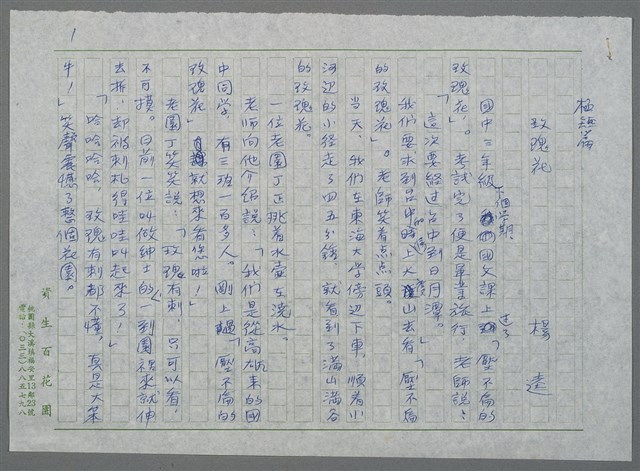 1
極短篇
玫瑰花　楊逵
國中三年級下個學期，國文課上過了「壓不傷的
玫瑰花」。考試完了便是畢業旅行，老師說：
「這次要經過台中到日月潭。」
我們要求到台中的時候上大度山去看「壓不傷
的玫瑰花」。老師笑着点点頭。
當天，我們在東海大學傍边下車，順着小
河边的小径走了四五分鐘，就看到了滿山滿谷
的玫瑰花。
一位老園丁正挑着水壺在澆水。
老师向他介紹說：「我們是從高雄來的國
中同学，有三班一百多人。剛上過「壓不傷的
玫瑰花」就想來看您啦！」
老園丁笑笑說：「玫瑰有刺，只可以看，
不可摸。日前一位叫做紳士的，一到園裡來就伸
去折，却被刺札得哇哇叫起來了！」
「哈哈哈哈，玫瑰有刺都不懂，真是大笨
牛！」笑聲震憾了整個花園。
資生百花園
桃園縣大溪鎮福安里13鄰23號
電話：〇三三）八八五七九八